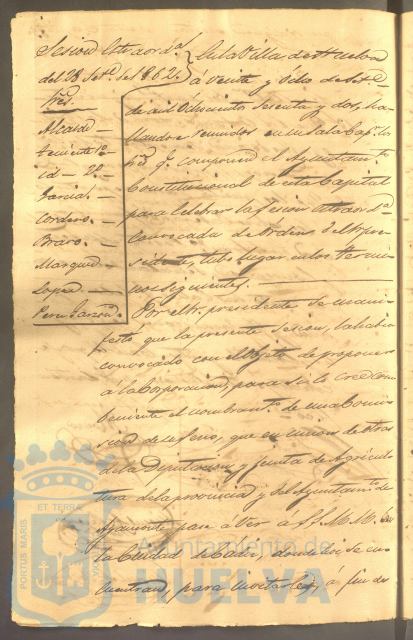 Sesion Extraord.ª
del 28 Set.e de 1862.
Sres.
Alcalde
Teniente 1º
id — 2º
Garcia.
Cordero.
Bravo.
Marquez.
Lopez.
Perez Garzon.
En la Villa de Huelva
á veinte y ocho de Set.e
de mil ochocientos sesenta y dos, ha-
llandose reunidos en su sala Cap.r los
Sres q.e componen el Ayuntam.to
Constitucional de esta Capital
para celebrar la sesion extraord.ª
convocada de orden del Sr pre-
sidente, tubo lugar en los termi-
nos siguientes.
Por el Sr. presidente se mani-
festó que la presente sesion, la habia
convocado con el objeto de proponer
á la Corporacion, para si lo cree con-
beniente el nombram.to de una Comi-
sion de su seno, que en union de otras
de la Diputacion y Junta de Agricul-
tura de la provincia y del Ayuntam.to de
Ayamonte pase a ver á SS. MM. en
la Ciudad de Cadiz, donde hoy se en-
cuentran, para invitarles, á fin de
ET TERRÆ
PORTUS MARIS
Ayuntamiento de
HUELVA